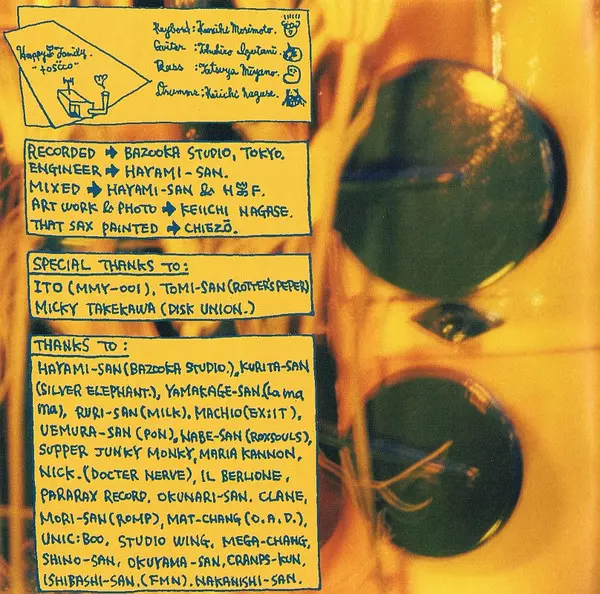 Happy Family.
"toscco"
Keybord: Kenichi Morimoto.
Guiter: Takuhiro Izutani.
Bass: Tatsuya Miyano.
Drums: Keiichi Nagase.
RECORDED ➔ BAZOOKA STUDIO, TOKYO.
ENGINEER ➔ HAYAMI-SAN.
MIXED ➔ HAYAMI-SAN & H⌘F.
ART WORK & PHOTO ➔ KEIICHI NAGASE.
THAT SAX PAINTED ➔ CHIEZŌ.
SPECIAL THANKS TO:
ITO (MMY-001), TOMI-SAN (ROTTER'S PEPER)
MICKY TAKEKAWA (DISK UNION.)
THANKS TO:
HAYAMI-SAN (BAZOOKA STUDIO.), KURITA-SAN
(SILVER ELEPHANT.), YAMAKAGE-SAN (La ma
ma), RURI-SAN (MILK), MACHIO (EX:IT),
UEMURA-SAN (PON), NABE-SAN (ROXSOULS),
SUPPER JUNKY MONKY, MARIA KANNON,
NICK. (DOCTER NERVE), IL BERLIONE,
PARARAX RECORD, OKUNARI-SAN, CLANE,
MORI-SAN (ROMP), MAT-CHANG (O.A.D.),
UNIC:BOO, STUDIO WING, MEGA-CHANG,
SHINO-SAN, OKUYAMA-SAN, CRANPS-KUN,
ISHIBASHI-SAN. (FMN). NAKANISHI-SAN.